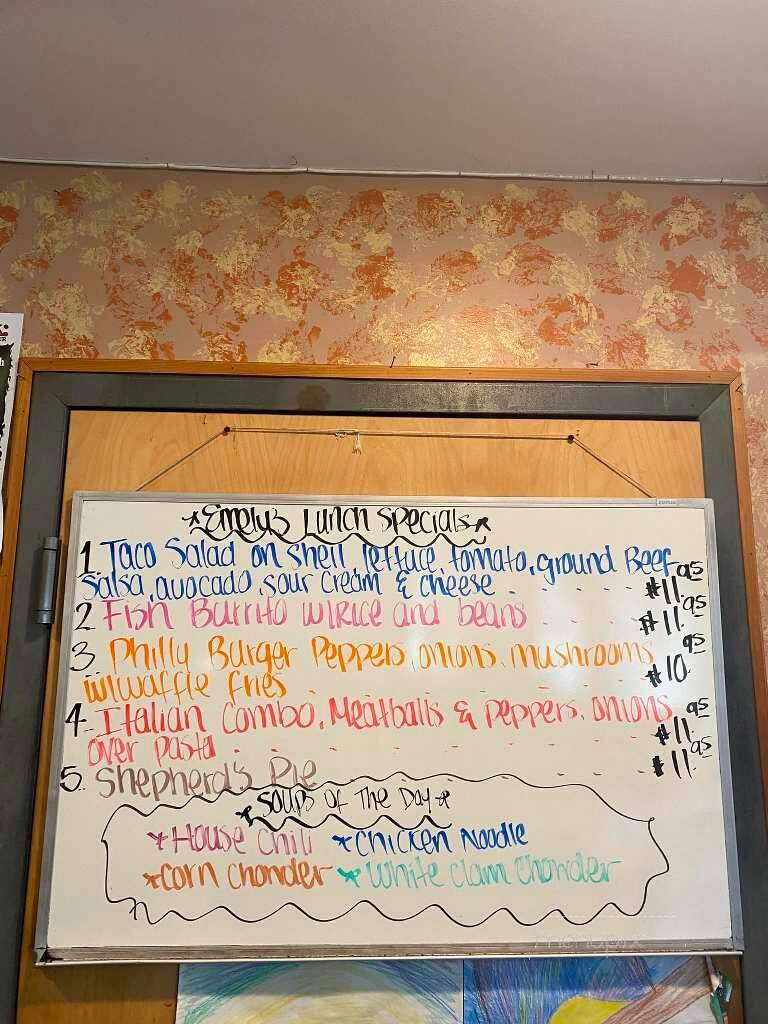 *Emely's Lunch Specials*
1. Taco Salad on shell, lettuce, tomato, ground Beef
Salsa, avocado, sour cream & cheese . . . . $11.95
2 Fish Burrito w/Rice and beans . . . . $11.95
3. Philly Burger Peppers, onions, mushrooms
w/waffle fries . . . . $10.95
4. Italian Combo, Meatballs & Peppers, onions
over pasta . . . . $11.95
5. Shepherd's Pie . . . . $11.95
*Soups of The Day*
*House Chili *Chicken Noodle
*Corn Chowder *White Clam Chowder